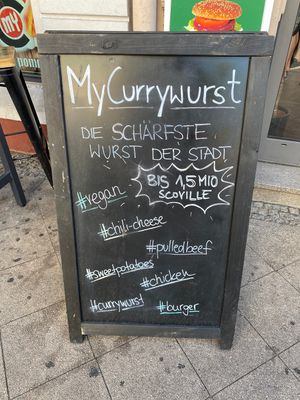 my
pom
MyCurrywurst
DIE SCHÄRFSTE
WURST DER STADT
BIS 1,5 MIO
SCOVILLE
#vegan
#chili-cheese
#pulledbeef
#sweetpotatoes
#chicken
#currywurst
#burger